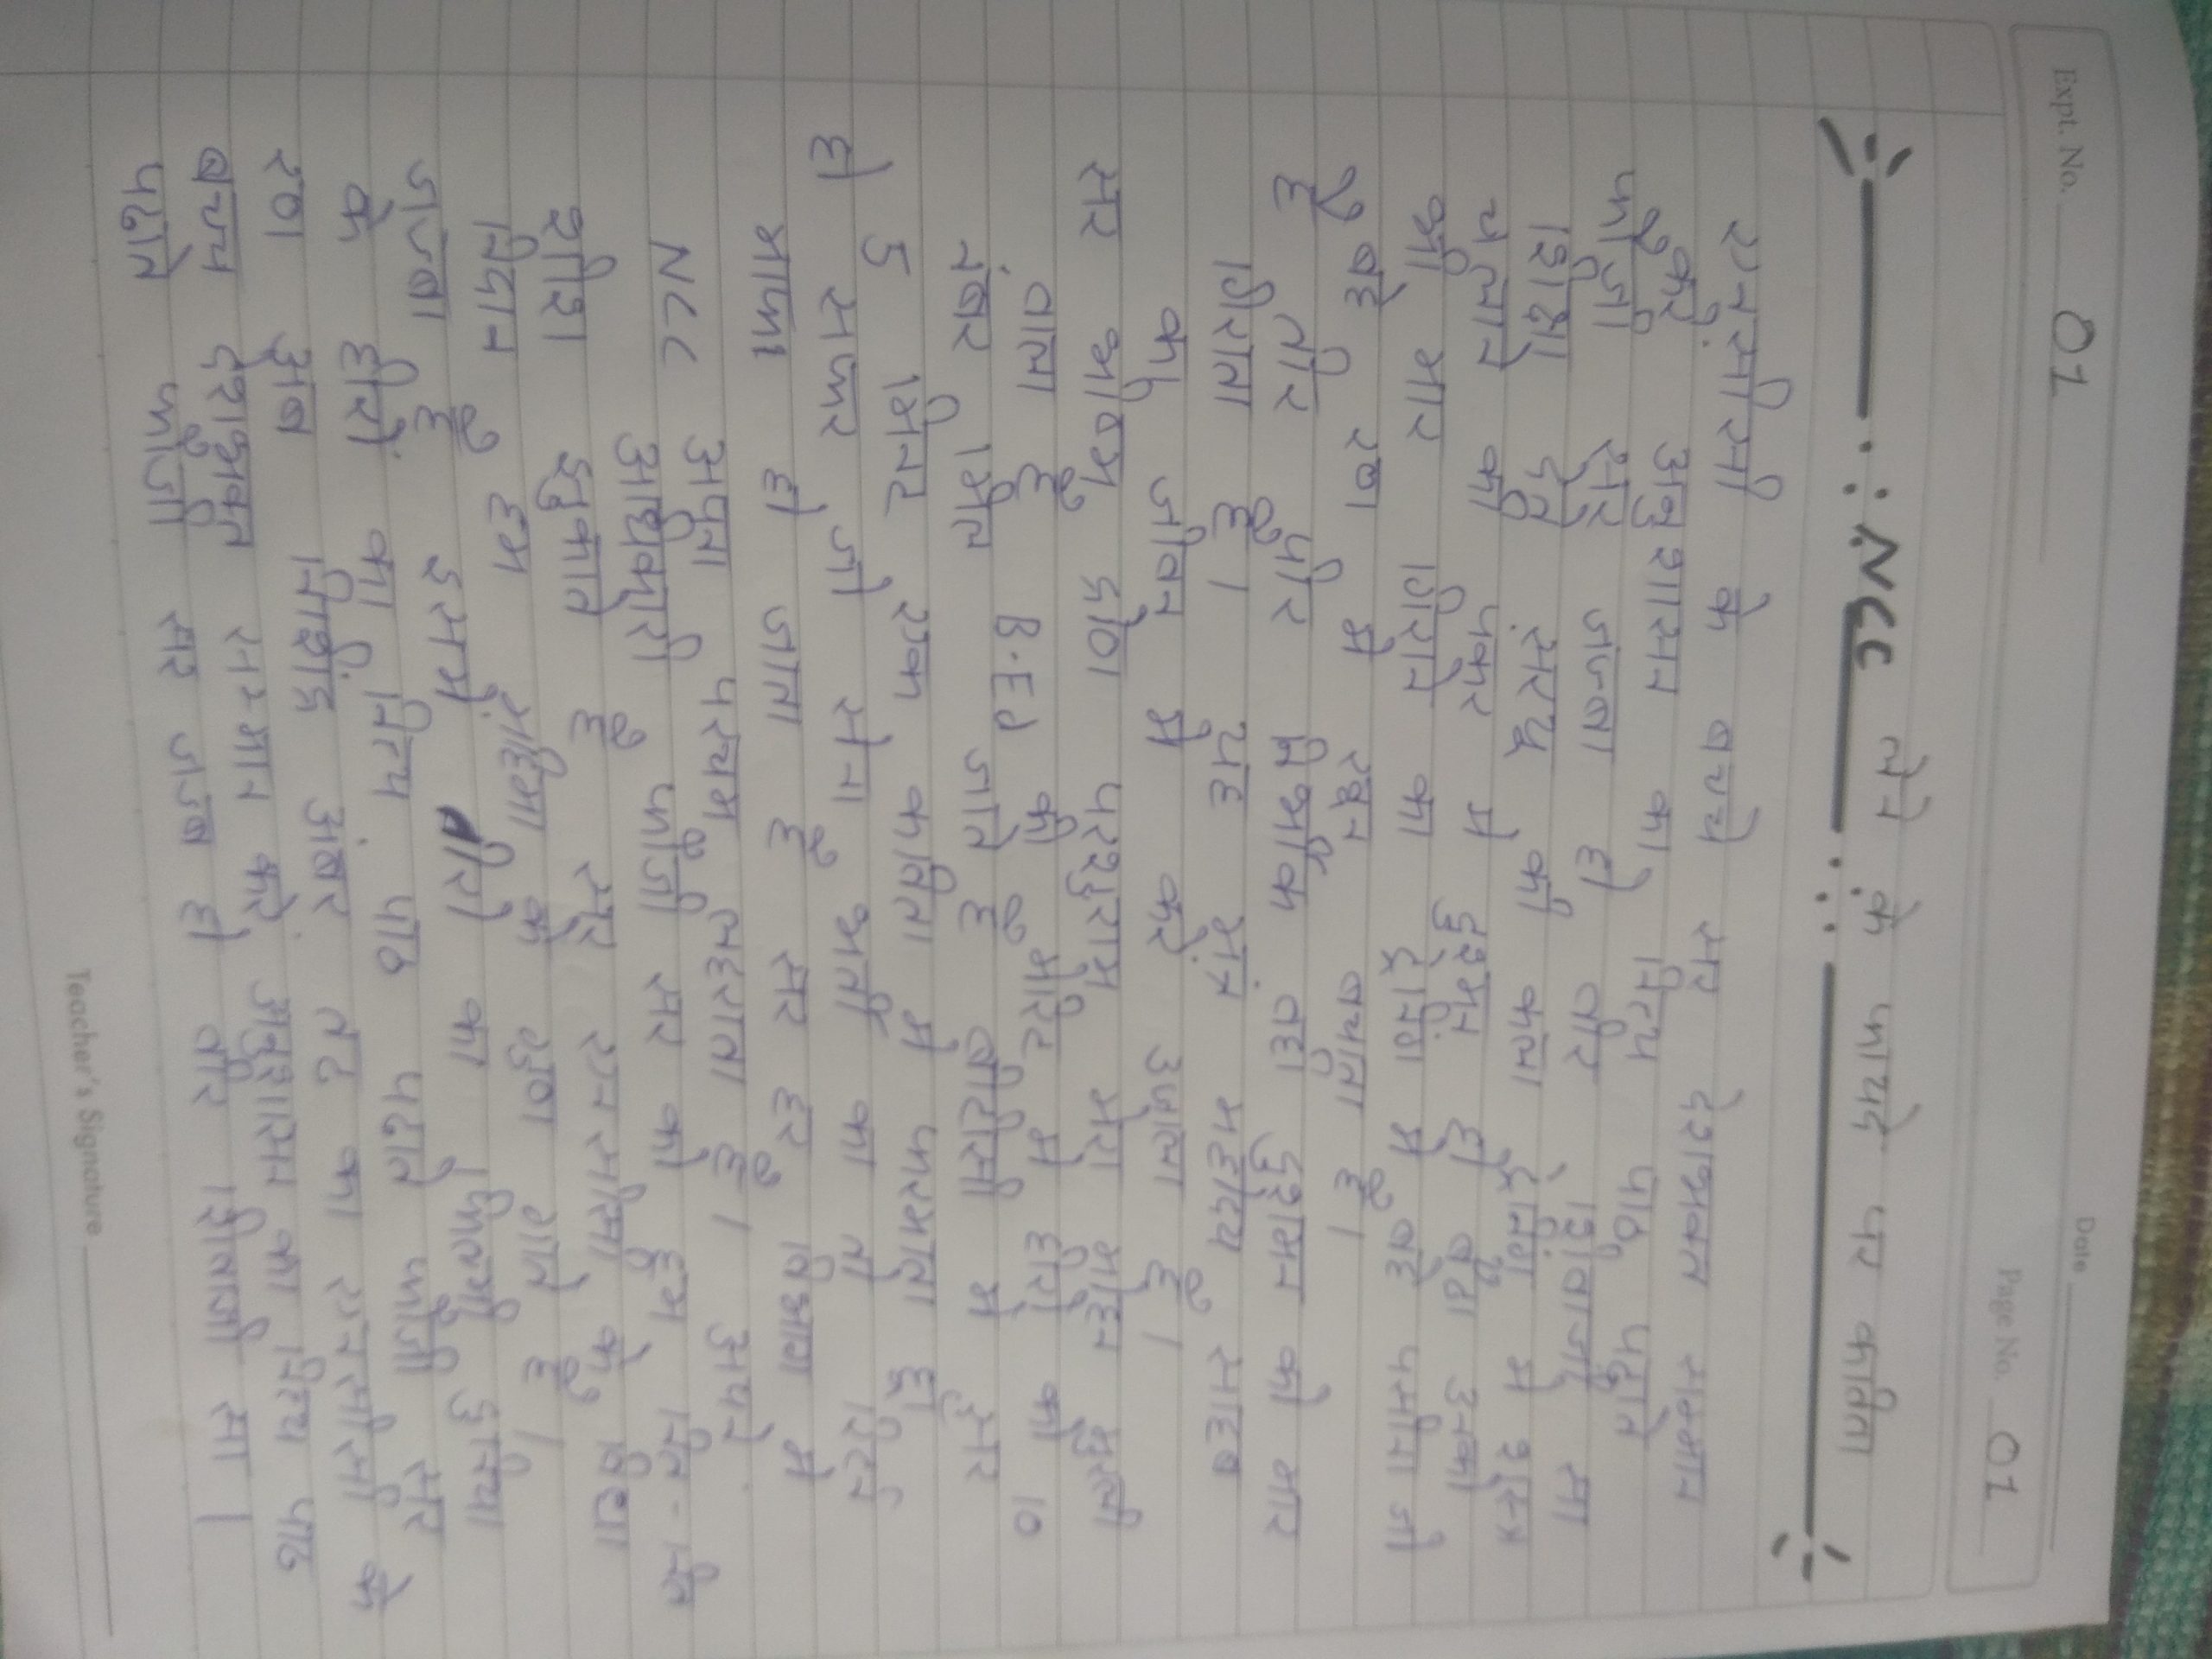 Expt. No. 01
Date
Page No. 01
NCC लेने के फायदे पर कविता
एनसीसी के बच्चे सर देशभक्त सम्मान
करे अनुशासन का नित्य पाठ पढ़ाते
फौजी सर जज्बा हो तीर शिवाजी सा
शिक्षा दूत सरयू की कला ट्रेनिंग में शस्त्र
चलाने की पकर में दुश्मन हो बैठा उनको
भी मार गिराने का ट्रेनिंग में वहे पसीना जो
है वह रण में रखून बचाता है।
है तीर पीर निर्भीक वहा दुशमन को मार
गिराता है। यह मंत्र महोदय साहब
के जीवन में करे उजाला है।
सर भीष्म द्रोण परशुराम मेरा मोहन मुरली
वाला है B.Ed की मेरिट में हीरो को 10
नंबर मिल जाते है वीटीसी में हुनर
5 मिनट एक कविता में फरमाता हूँ
हो सफर जो सेना भर्ती का तो रिटर्न
माफ हो जाता है सर हर विभाग में
NCC अपना परचम लहराता है। अपने
अधिकारी फौजी सर को हम नित-नित
शीश झुकाते है सर एनसीसी के विधा
निदान हम महिमा के गुण गाते है।
जज्बा है इसमें वीरो का फिल्मी दुनिया
के हीरो का नित्य पाठ पढ़ाते फौजी सर
रण ध्रुव निशांद्र अंबर तट का एनसीसी के
बच्चे देशभक्त सम्मान करे अनुशासन का नित्य पाठ
पढाते फौजी सर जज्ब हो वीर शिवाजी सा।
Teacher's Signature